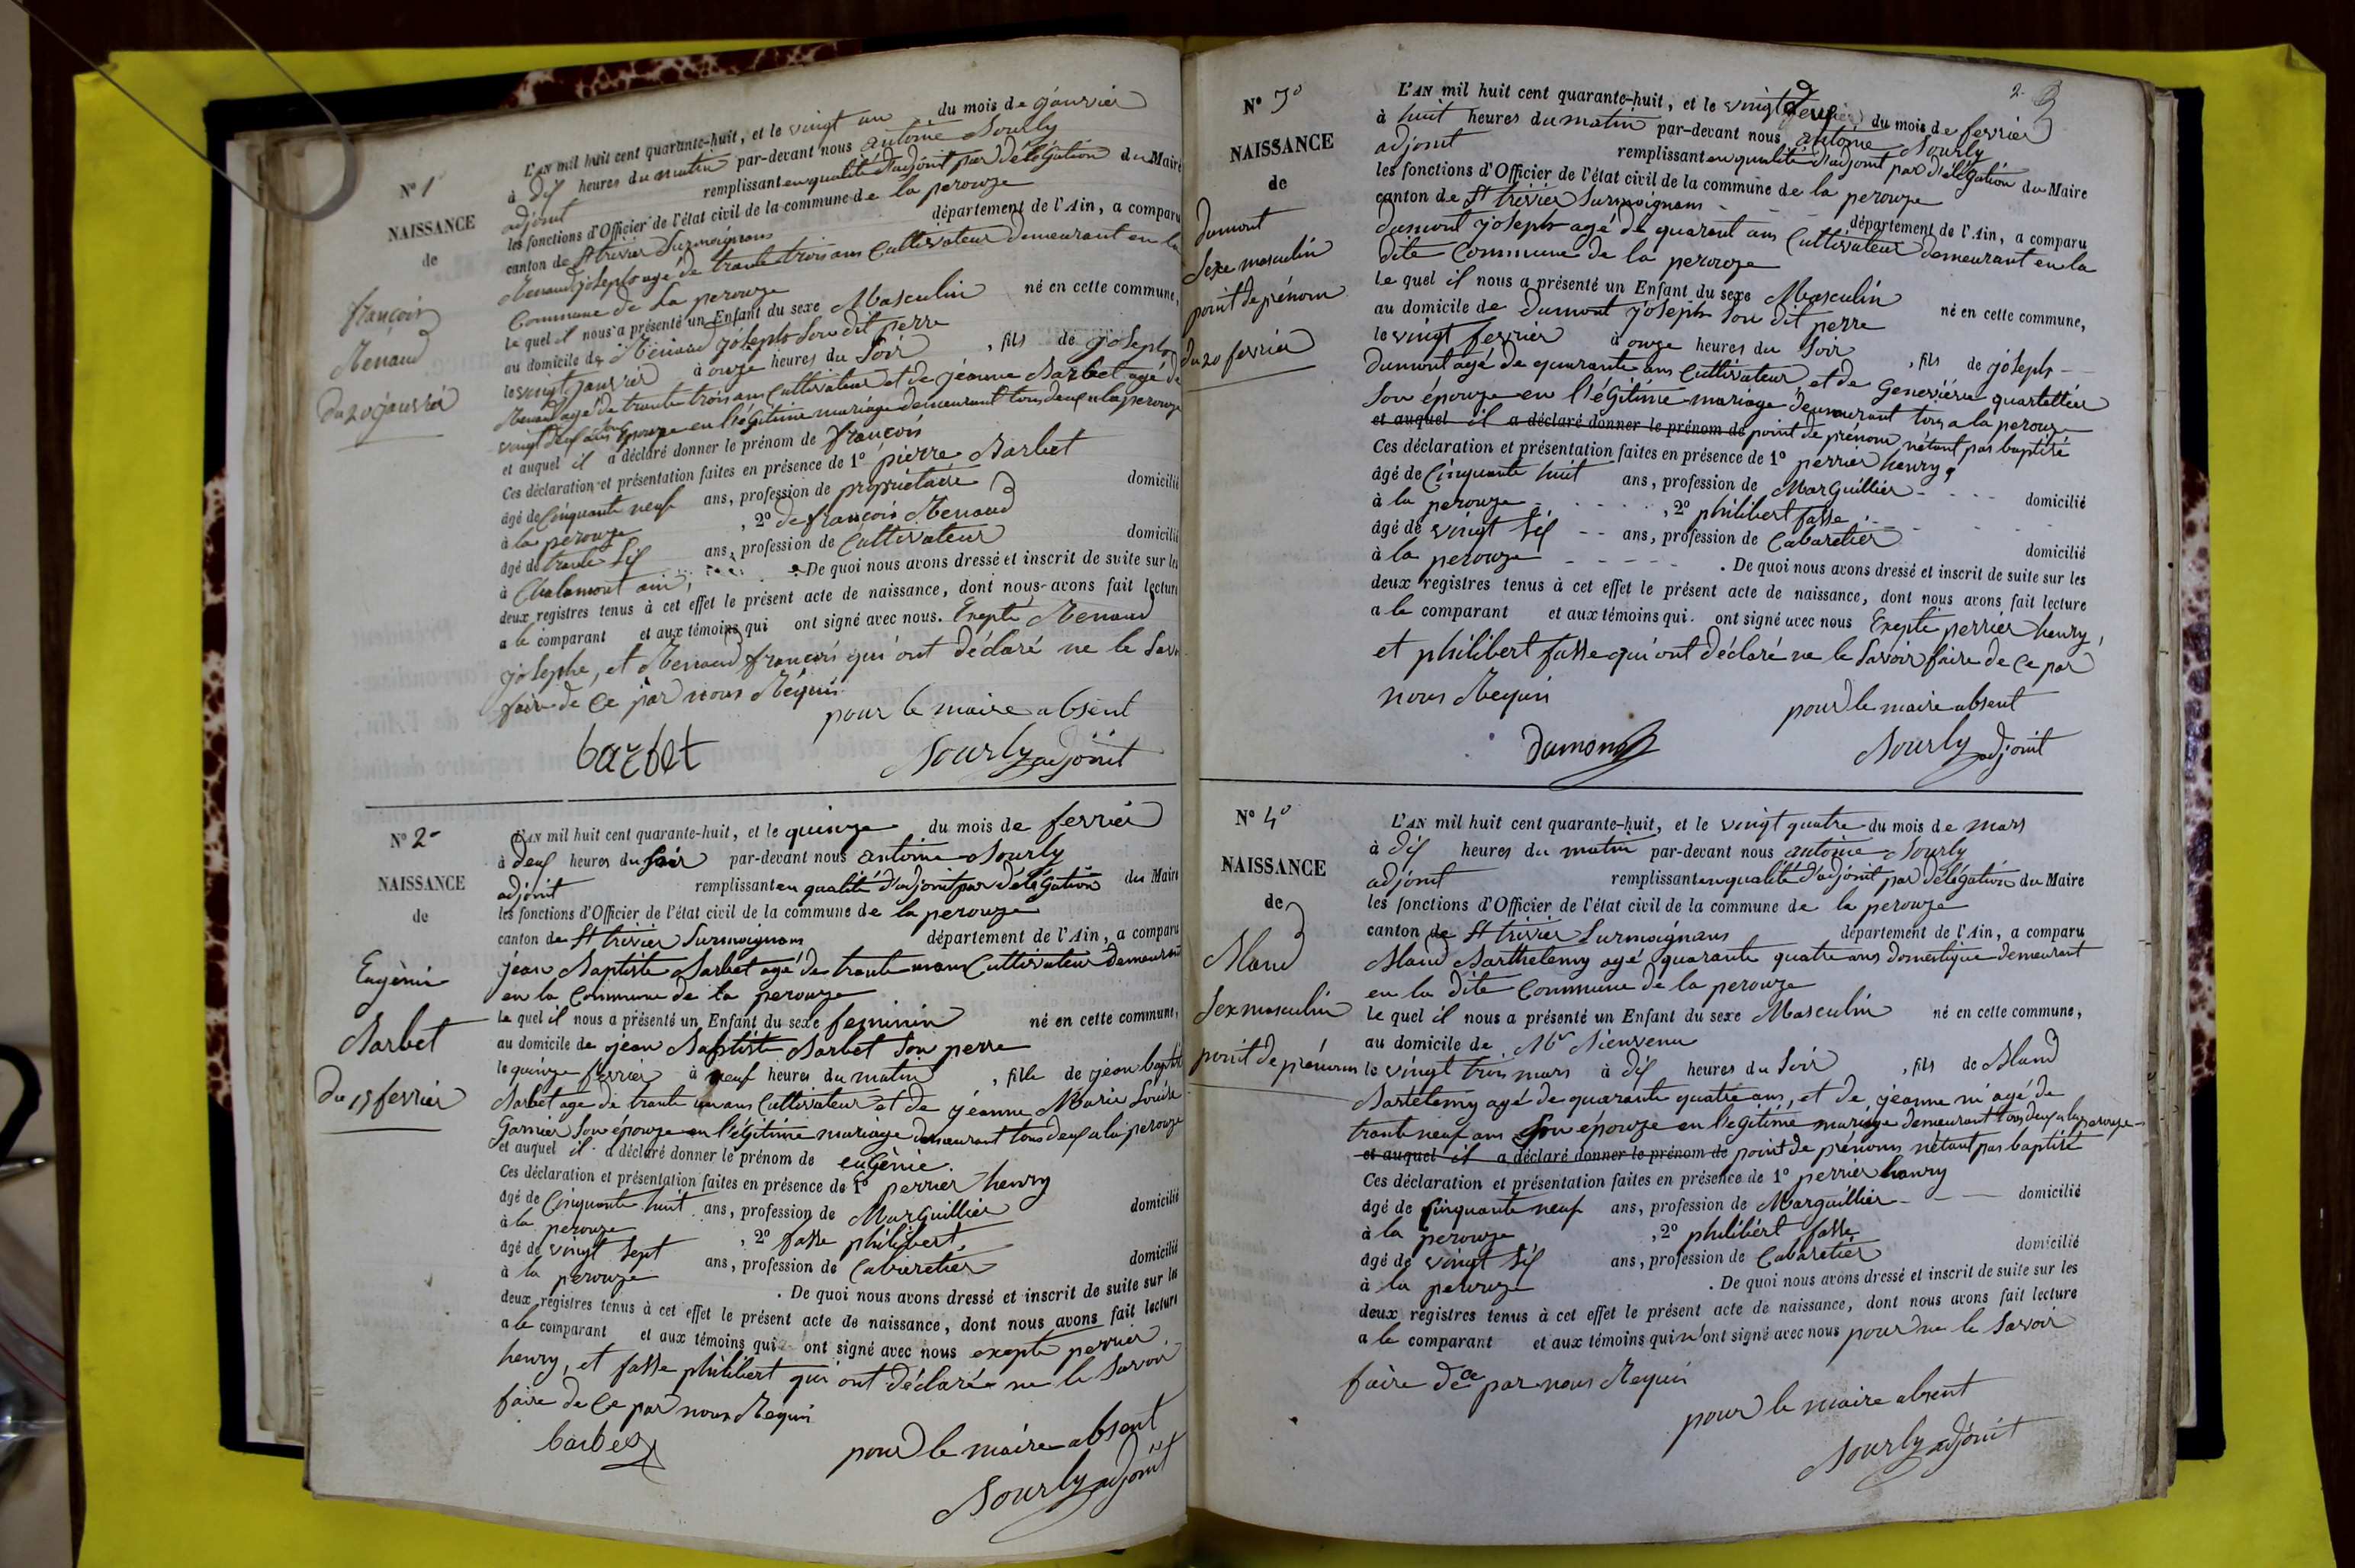 N° 1
NAISSANCE
de
françois
Renaud
du 20 janvier
L'AN mil huit cent quarante-huit, et le vingt un du mois de janvier
à dix heures du matin par-devant nous antoine Sourly
adjoint remplissant en qualité d'adjoint par délégation du Maire
les fonctions d'Officier de l'état civil de la commune de la perouze
canton de St trivier Surmoignans département de l'Ain, a comparu
Renaud joseph agé de trante trois ans Cultivateur demeurant en la
Commune de la perouze
le quel il nous a présenté un Enfant du sexe Masculin né en cette commune,
au domicile de Renaud joseph Son dit perre
le vingt janvier à onze heures du Soir , fils de joseph
Renaud agé de trante trois ans Cultivateur et de jeanne Barbet agé de
vingt deux ans Son Epouze en l'égitime mariage demeurant tous deux a la perouze
et auquel il a déclaré donner le prénom de françois
Ces déclaration et présentation faites en présence de 1° pierre Barbet
âgé de Cinquante neuf ans, profession de propriétaire domicilié
à la perouze , 2° de françois Renaud
âgé de trante Six ans, profession de Cultivateur domicilié
à Chalamont ain, . De quoi nous avons dressé et inscrit de suite sur les
deux registres tenus à cet effet le présent acte de naissance, dont nous avons fait lecture
a le comparant et aux témoins qui ont signé avec nous. Exepté Renaud
josephe, et Renaud françois qui ont déclaré ne le Savoir
faire de Ce par nous Requis
pour le maire absent
barbet Sourly adjoint
N° 2°
NAISSANCE
de
Eugènie
Barbet
du 15 fevrier
L'AN mil huit cent quarante-huit, et le quinze du mois de fevrier
à deux heures du Soir par-devant nous antoine Sourly
adjoint remplissant en qualité d'adjoint par délégation du Maire
les fonctions d'Officier de l'état civil de la commune de la perouze
canton de St trivier Surmoignans département de l'Ain, a comparu
jean Baptiste Barbet agé de trante un ans Cultivateur Demeurant
en la Commune de la perouze
le quel il nous a présenté un Enfant du sexe feminin né en cette commune,
au domicile de jean Baptiste Barbet Son perre
le quinze fevrier à neuf heures du matin , fille de jean baptiste
Barbet age de trante un ans Cultivateur et de jeanne Marie Louise
Garnier Son épouze en l'égitime mariage demeurant tous deux a la perouze
et auquel il a déclaré donner le prénom de eugènie.
Ces déclaration et présentation faites en présence de 1° perrier henry
âgé de Cinquante huit ans, profession de Marguillier domicilié
à la perouze , 2° fasse philibert
âgé de vingt sept ans, profession de Cabaretier domicilié
à la perouze . De quoi nous avons dressé et inscrit de suite sur les
deux registres tenus à cet effet le présent acte de naissance, dont nous avons fait lecture
a le comparant et aux témoins qui ont signé avec nous exepté perrier
henry, et fasse philibert qui ont déclaré ne le Savoir
faire de Ce par nous Requis
barbet pour le maire absent
Sourly adjoint
2.
N° 3°
NAISSANCE
de
dumont
Sexe masculin
point de prénom
du 20 fevrier
L'AN mil huit cent quarante-huit, et le vingt deux du mois de fevrier
à huit heures du matin par-devant nous antoine Sourly
adjoint remplissant en qualité d'adjoint par délégation du Maire
les fonctions d'Officier de l'état civil de la commune de la perouze
canton de St trivier Surmoignans département de l'Ain, a comparu
dumont joseph agé de quarant ans Cultivateur demeurant en la
dite Commune de la perouze
le quel il nous a présenté un Enfant du sexe Masculin né en cette commune,
au domicile de dumont joseph Son dit perre
le vingt fevrier à onze heures du Soir , fils de joseph
dumont agé de quarante ans Cultivateur, et de Genevièrve quartettier
Son épouze en l'égitime mariage demeurant tous a la perouze
et auquel il a déclaré donner le prénom de point de prénom nétant pas baptisé
Ces déclaration et présentation faites en présence de 1° perrier henry,
âgé de Cinquante huit ans, profession de Marguillier domicilié
à la perouze , 2° philibert fasse
âgé de vingt Six ans, profession de Cabaretier domicilié
à la perouze . De quoi nous avons dressé et inscrit de suite sur les
deux registres tenus à cet effet le présent acte de naissance, dont nous avons fait lecture
a le comparant et aux témoins qui ont signé avec nous Exepté perrier henry,
et philibert fasse qui ont déclaré ne le Savoir faire de Ce par
nous Requis
pour le maire absent
dumont Sourly adjoint
N° 4°
NAISSANCE
de
Bland
Sex masculin
point de prénoms
L'AN mil huit cent quarante-huit, et le vingt quatre du mois de mars
à dix heures du matin par-devant nous antoine Sourly
adjoint remplissant en qualité d'adjoint par délégation du Maire
les fonctions d'Officier de l'état civil de la commune de la perouze
canton de St trivier Surmoignans département de l'Ain, a comparu
Bland Barthelemy agé quarante quatre ans domestique demeurant
en la dite Commune de la perouze
le quel il nous a présenté un Enfant du sexe Masculin né en cette commune,
au domicile de Mr Bienvenu
le vingt trois mars à dix heures du Soir , fils de Bland
Bartelemy agé de quarante quatre ans, et de jeanne ni agé de
trante neuf ans Son épouze en l'egitime mariage demeurant tous deux a la perouze
et auquel il a déclaré donner le prénom de point de prénoms nétant pas baptisé
Ces déclaration et présentation faites en présence de 1° perrier henry
âgé de Cinquante neuf ans, profession de Marguillier domicilié
à la perouze , 2° philibert fasse
âgé de vingt Six ans, profession de Cabaretier domicilié
à la perouze . De quoi nous avons dressé et inscrit de suite sur les
deux registres tenus à cet effet le présent acte de naissance, dont nous avons fait lecture
a le comparant et aux témoins qui n'ont signé avec nous pour ne le Savoir
faire de ce par nous Requis
pour le maire absent
Sourly adjoint